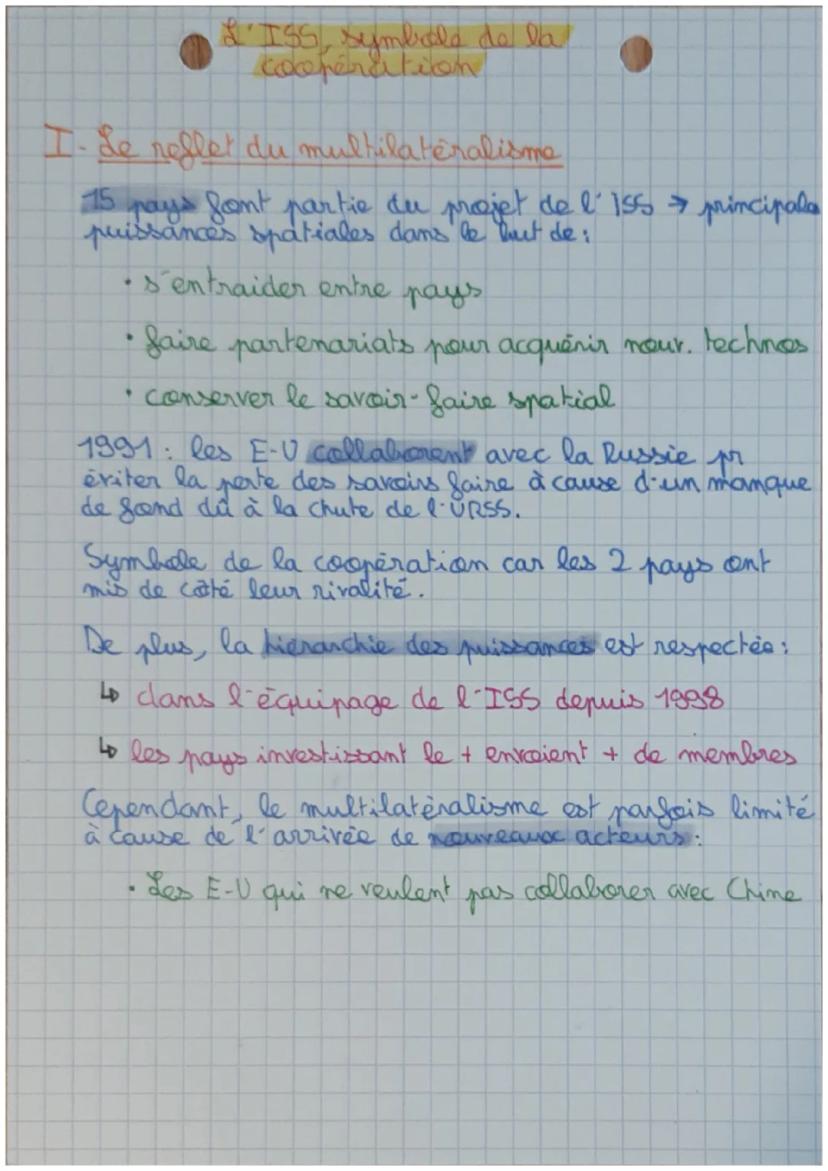 L'ISS, symbole de la
coopération
I- Le reflet du multilatéralisme
15 pays font partie du projet de l'ISS → principales
puissances spatiales dans le but de :
• s'entraider entre pays
• faire partenariats pour acquérir nouv. technos
• conserver le savoir-faire spatial
1991 : les E-U collaborent avec la Russie pr
éviter la perte des savoirs faire à cause d'un manque
de fond dû à la chute de l'URSS.
Symbole de la coopération car les 2 pays ont
mis de côté leur rivalité.
De plus, la hiérarchie des puissances est respectée :
↳ dans l'équipage de l'ISS depuis 1998
↳ les pays investissant le + envoient + de membres
Cependant, le multilatéralisme est parfois limité
à cause de l'arrivée de nouveaux acteurs :
• Les E-U qui ne veulent pas collaborer avec Chine